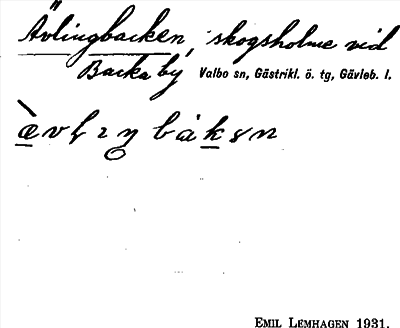 Ävlingbacken, skogsholme vid
Backa by Valbo sn, Gästrikl. ö. tg, Gävleb. l.
EMIL LEMHAGEN 1931.